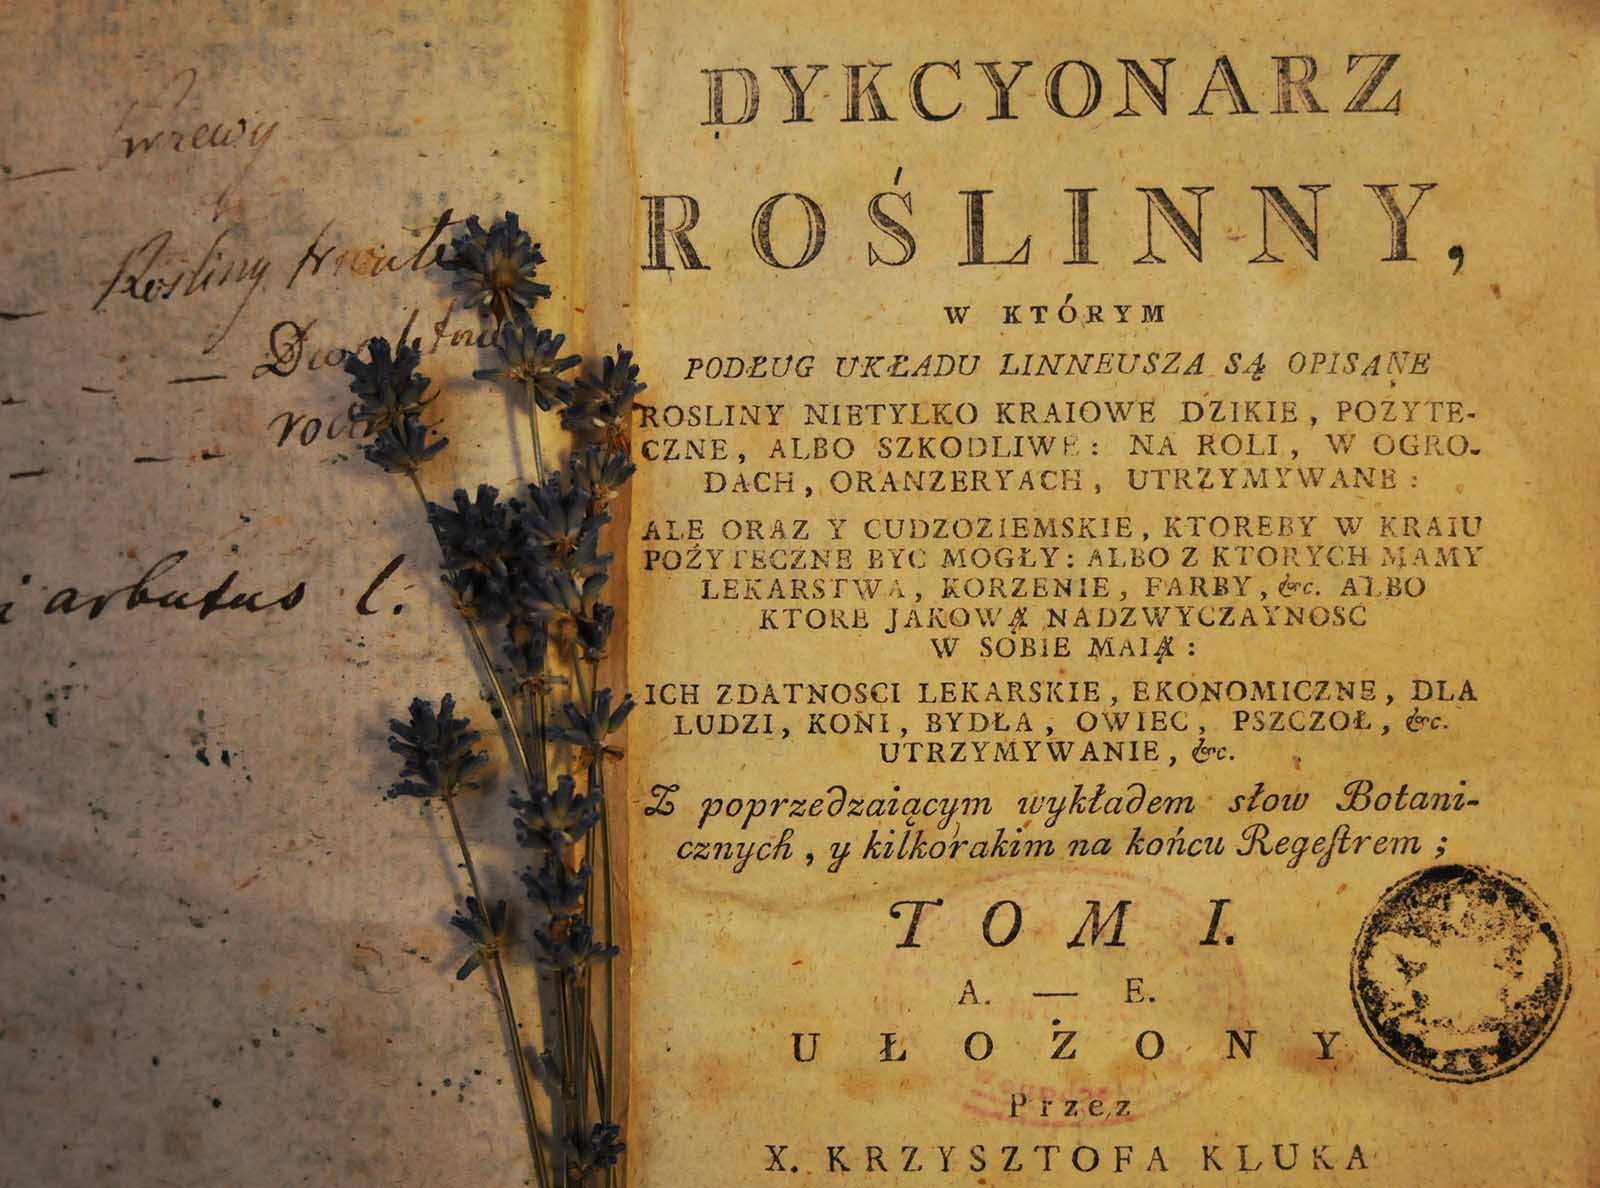 Krzewy
Rosliny trwałe
arbutus l.
DYKCYONARZ
ROŚLINNY,
W KTÓRYM
PODŁUG UKŁADU LINNEUSZA SĄ OPISANE
ROSLINY NIETYLKO KRAIOWE DZIKIE, POŻYTE-
CZNE, ALBO SZKODLIWE: NA ROLI, W OGRO-
DACH, ORANZERYACH, UTRZYMYWANE:
ALE ORAZ Y CUDZOZIEMSKIE, KTOREBY W KRAIU
POŻYTECZNE BYC MOGŁY: ALBO Z KTORYCH MAMY
LEKARSTWA, KORZENIE, FARBY, &c. ALBO
KTORE JAKOWĄ NADZWYCZAYNOSC
W SOBIE MAIĄ:
ICH ZDATNOSCI LEKARSKIE, EKONOMICZNE, DLA
LUDZI, KONI, BYDŁA, OWIEC, PSZCZOŁ, &c.
UTRZYMYWANIE, &c.
Z poprzedzaiącym wykładem słow Botani-
cznych, y kilkorakim na końcu Regestrem;
TOM I.
A. — E.
UŁOŻONY
Przez
X. KRZYSZTOFA KLUKA